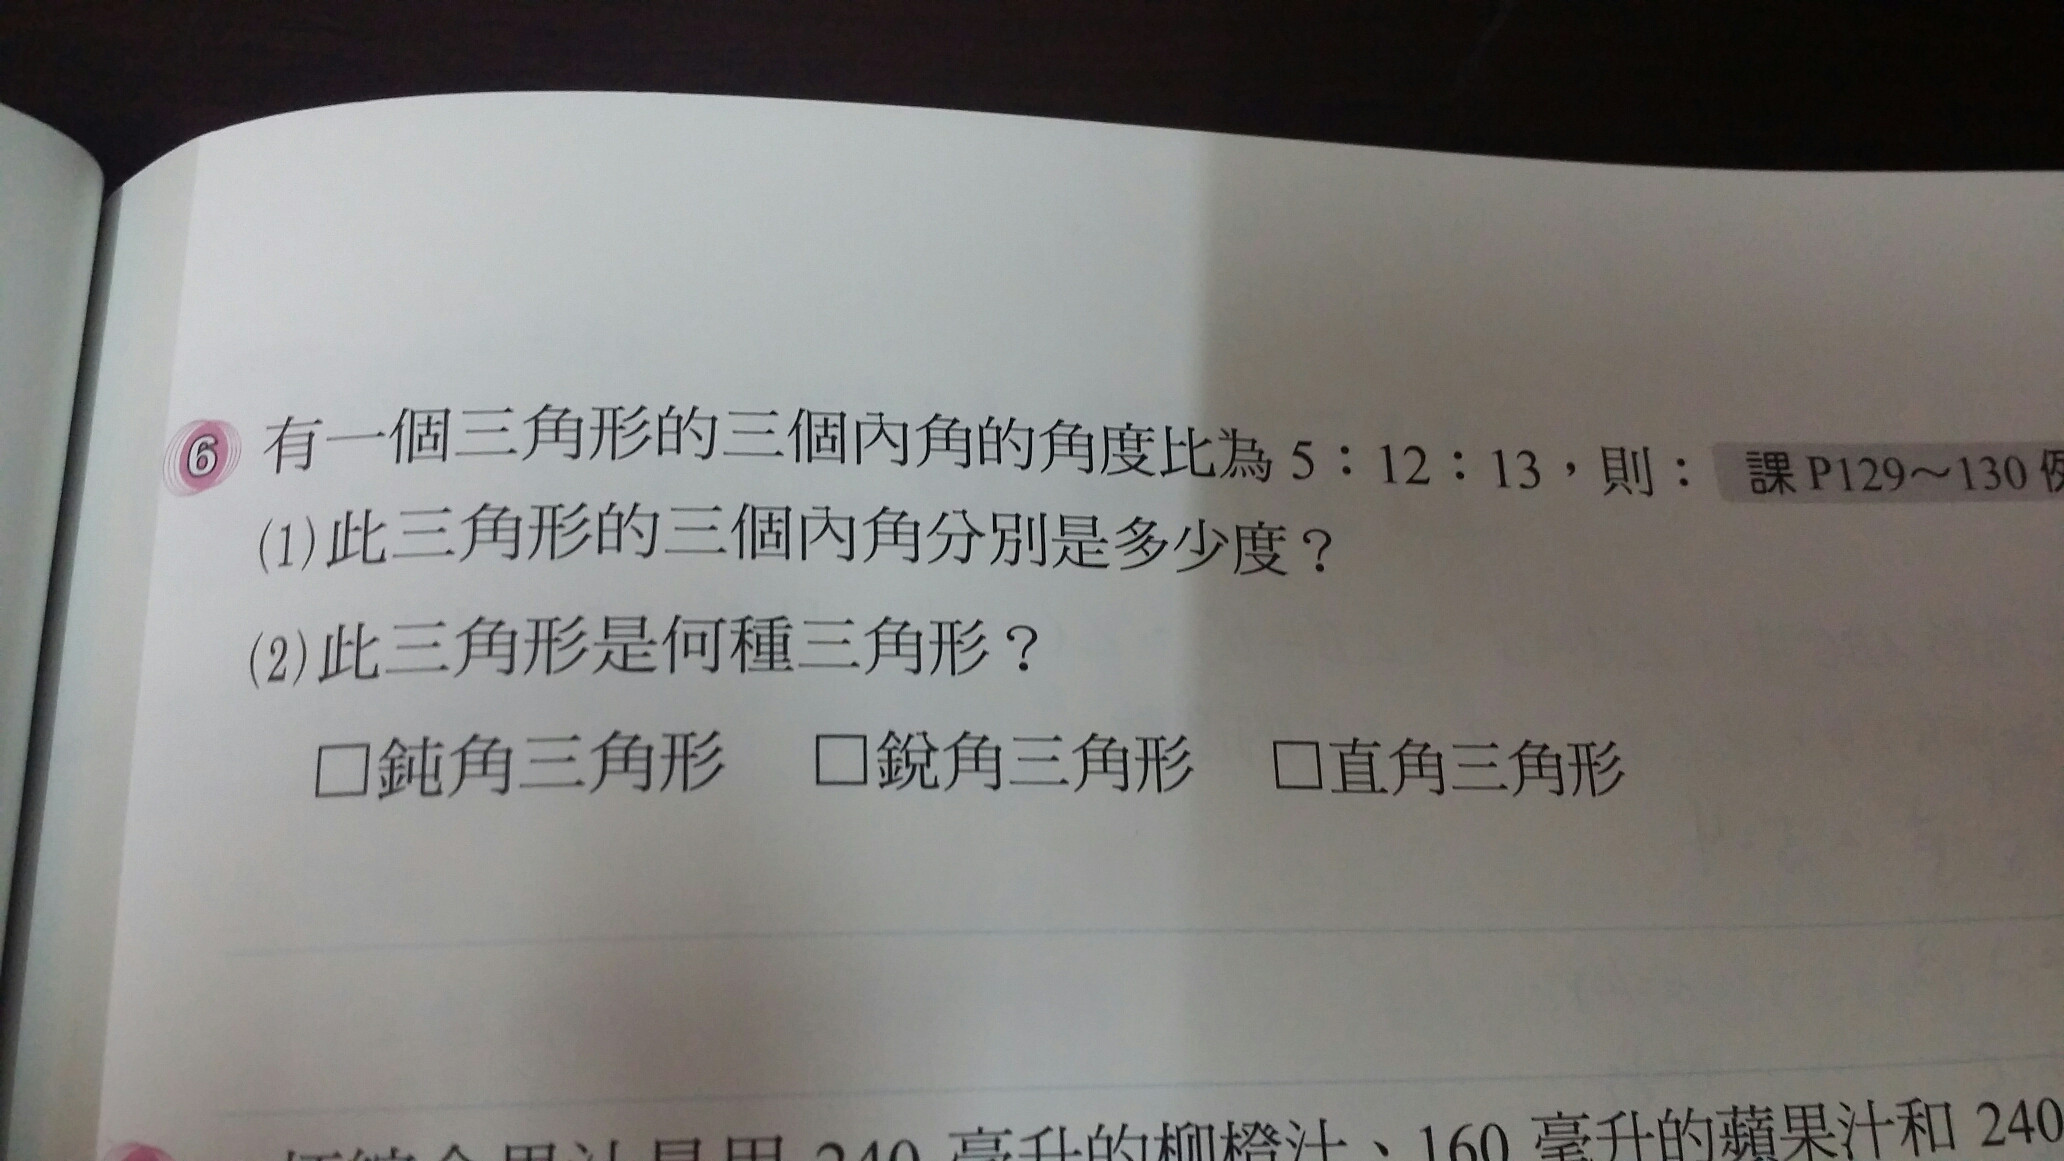 6 有一個三角形的三個內角的角度比為 5：12：13，則： 課 P129～130
(1)此三角形的三個內角分別是多少度？
(2)此三角形是何種三角形？
□鈍角三角形 □銳角三角形 □直角三角形
240 毫升的柳橙汁、160 毫升的蘋果汁和 240